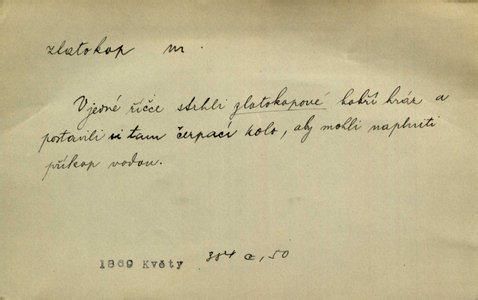 zlatokop m.
V jedné říčce strhli zlatokopové bobří hráz a
postavili si tam čerpací kolo, aby mohli naplniti
příkop vodou.
1869 Květy 384 a, 50